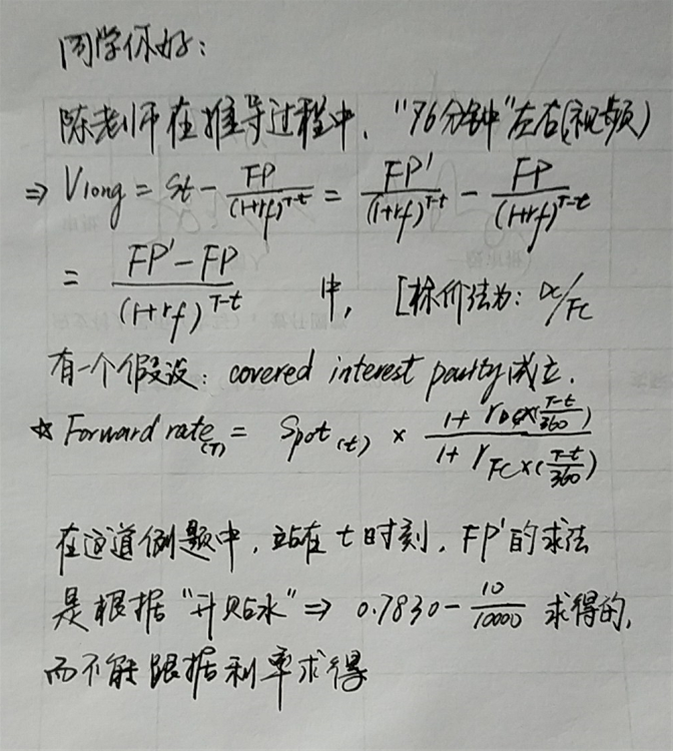 同学你好：
陈老师在推导过程中，“76分钟”左右(视频)
⇒ Vlong = St - FP/(1+rf)^T-t = FP'/(1+rf)^T-t - FP/(1+rf)^T-t
= FP'-FP/(1+rf)^T-t 中， [标价法为: DC/FC
有一个假设: covered interest parity成立.
☆ Forward rate(T) = Spot(t) × 1+ rDC×(T-t/360)/1+ rFC×(T-t/360)
在这道例题中，站在t时刻，FP'的求法
是根据“升贴水”⇒ 0.7830-10/10000 求得的,
而不能跟据利率求得